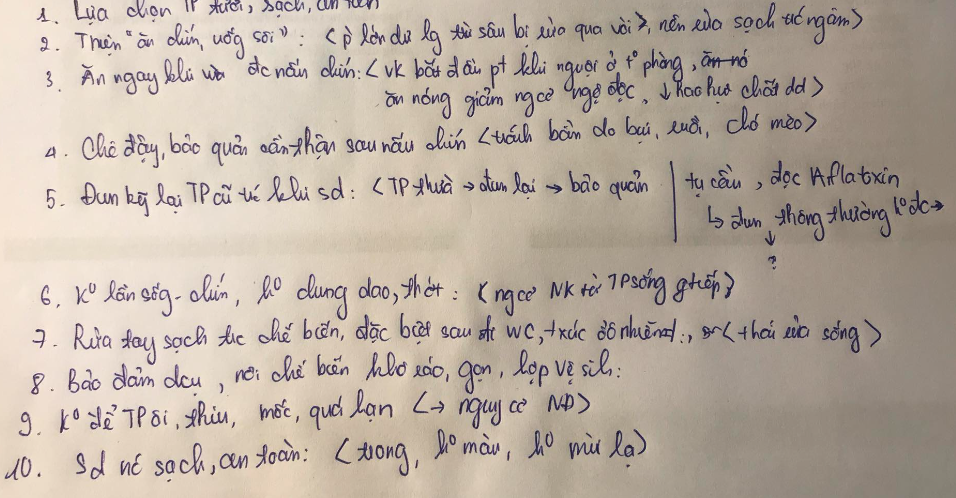 1. Lựa chọn TP tươi, sạch, an toàn
2. Thiện "ăn chín, uống sôi": <p lớn dư lg trừ sâu bị rửa qua vòi>, nên rửa sạch trc ngâm>
3. Ăn ngay khi vừa đc nấu chín: <VK bắt đầu pt khi nguội ở t° phòng, ăn nó
ăn nóng giảm ngcơ ngộ độc, ↓ hao hụt chất dd>
4. Che đậy, bảo quản cẩn thận sau nấu chín <tránh bẩn do bụi, ruồi, chó mèo>
5. Đun kỹ lại TP cũ trc khi sd: <TP thừa → đun lại → bảo quản | tụ cầu, độc Aflatxin
↳ đun thông thường k° đc →
↓
?
6. K° lẫn sốg - chín, k° dung dao, thớt: <ngcơ NK từ TP sống gtiếp>
7. Rửa tay sạch trc chế biến, đặc biệt sau đi WC, txúc ô nhiễm!:, <thái rửa sống>
8. Bảo đảm dcụ, nơi chế biến khô ráo, gọn, hợp vệ sih:
9. K° để TP ôi, thiu, mốc, quá hạn <→ nguy cơ NĐ>
10. Sd nc sạch, an toàn: <trong, k° màu, k° mùi lạ>